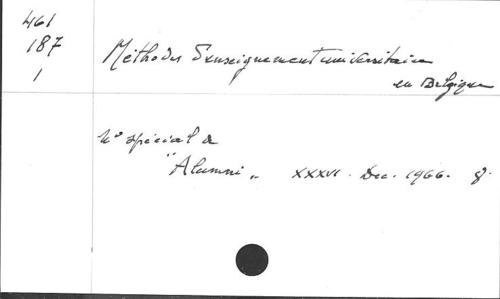 461
187
1
Méthodes d'enseignement universitaire
en Belgique
N° spécial de
"Alumni" XXXVI. Dec. 1966. 8°